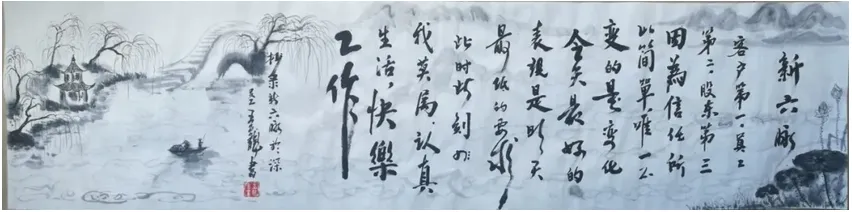 新六脉
客户第一員工
第二股东第三
因為信任所
以简單唯一不
变的是变化
今天最好的
表現是明天
最低的要求
此时此刻非
我莫属、认真
生活,快樂
工作
新六脉於深
書